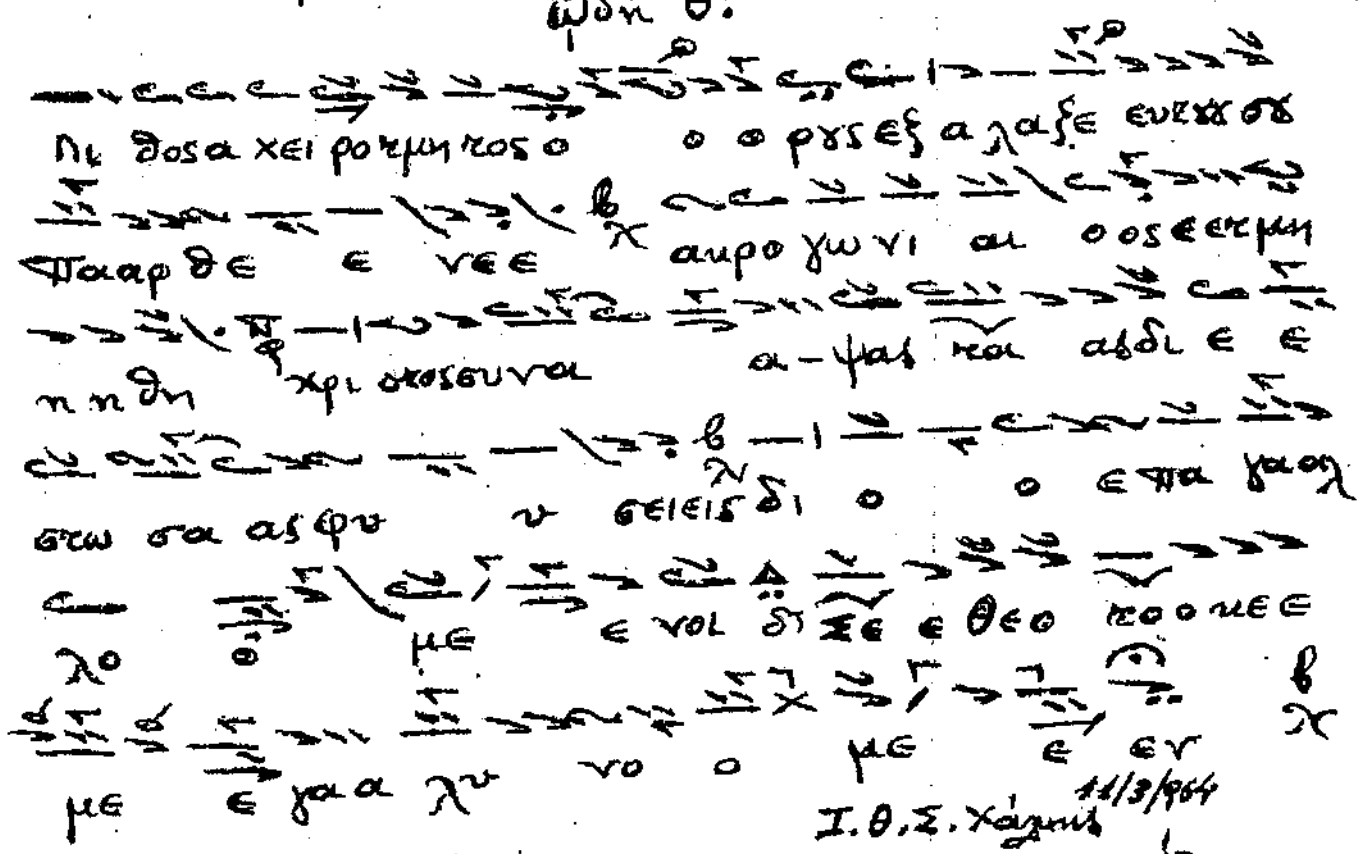 ᾠδὴ θ.
λι θος α χει ρο τμη τος ο ο ο ρους εξ α λα ξε ευ του σου
Πα αρ θε ε νε ε β λ ακρο γω νι αι ο ος ε ε τμη
η η θη χρι στος συν α α-ψας τα ας δι ε ε
στω σα ας φυ υ σει εις δι ο ο ε πα γα αλ
λο ο με ε νοι δι σε ε θε ο το ο κε ε
με ε γα α λυ νο ο με ε εν β λ
Ι.Θ.Σ. Χάλκης 11/3/964